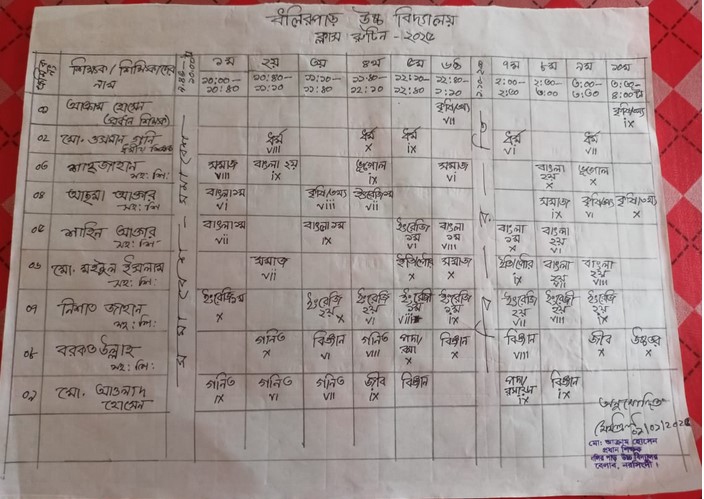 ধলিরপাড় উচ্চ বিদ্যালয়
ক্লাস রুটিন - ২০২৫
ক্রমিক নং শিক্ষক/ শিক্ষিকাদের নাম ১ম ২য় ৩য় ৪র্থ ৫ম ৬ষ্ঠ ৭ম ৮ম ৯ম ১০ম
১০:০০-১০:৪০ ১০:৪০-১১:১০ ১১:১০-১১:৪০ ১১:৪০-১২:১০ ১২:১০-১২:৪০ ১২:৪০-১:১০ ২:০০-২:৩০ ২:৩০-৩:০০ ৩:০০-৩:৩০
সমাবেশ
আক্রাম হোসেন (প্রধান শিক্ষক) কৃষি/তথ্য VII কৃষি/তথ্য ix
০২ মো. ওসমান গনি ধর্ম VIII ধর্ম x ধর্ম ix ধর্ম vi ধর্ম VII
শাহজাহান সহ: শি: সমাজ VIII বাংলা ২য় ix ভূগোল ix সমাজ vi বাংলা ২য় x ভূগোল x
০৪ আছমা আক্তার সহ: শি বাংলা ১ম vi কৃষি/তথ্য viii ইংরেজি ১ম vii সমাজ ix কৃষি/তথ্য vi কৃষি/তথ্য x
০৫ শাহিন আক্তার সহ: শি: বাংলা ১ম vii বাংলা ১ম ix ইংরেজি ১ম vi বাংলা ১ম VIII বাংলা ১ম x বাংলা ২য় vi
০৬ মো. মইনুল ইসলাম সহ: শি: সমাজ vii সমাজ x বাংলা ২য় VII বাংলা ২য় VIII
০৭ নিশাত জাহান সহ: শি: ইংরেজি ১ম x ইংরেজি ২য় x ইংরেজি ২য় vi ইংরেজি viii ইংরেজি ২য় ix ইংরেজি ২য় VII ইংরেজি ২য় VIII ইংরেজি ২য় ix
০৮ বরকত উল্লাহ সহ: শি: গনিত x বিজ্ঞান vi গনিত VIII পদা/ x বিজ্ঞান x বিজ্ঞান VIII জীব x উচ্চতর x
০৯ মো. আওলাদ হোসেন গনিত ix গনিত vi গনিত VII জীব ix বিজ্ঞান পদা/ রসায়ন ix বিজ্ঞান ix
অনুমোদিত
মো: আক্রাম হোসেন
প্রধান শিক্ষক
ধলির পাড় উচ্চ বিদ্যালয়
বেলাব, নরসিংদী।